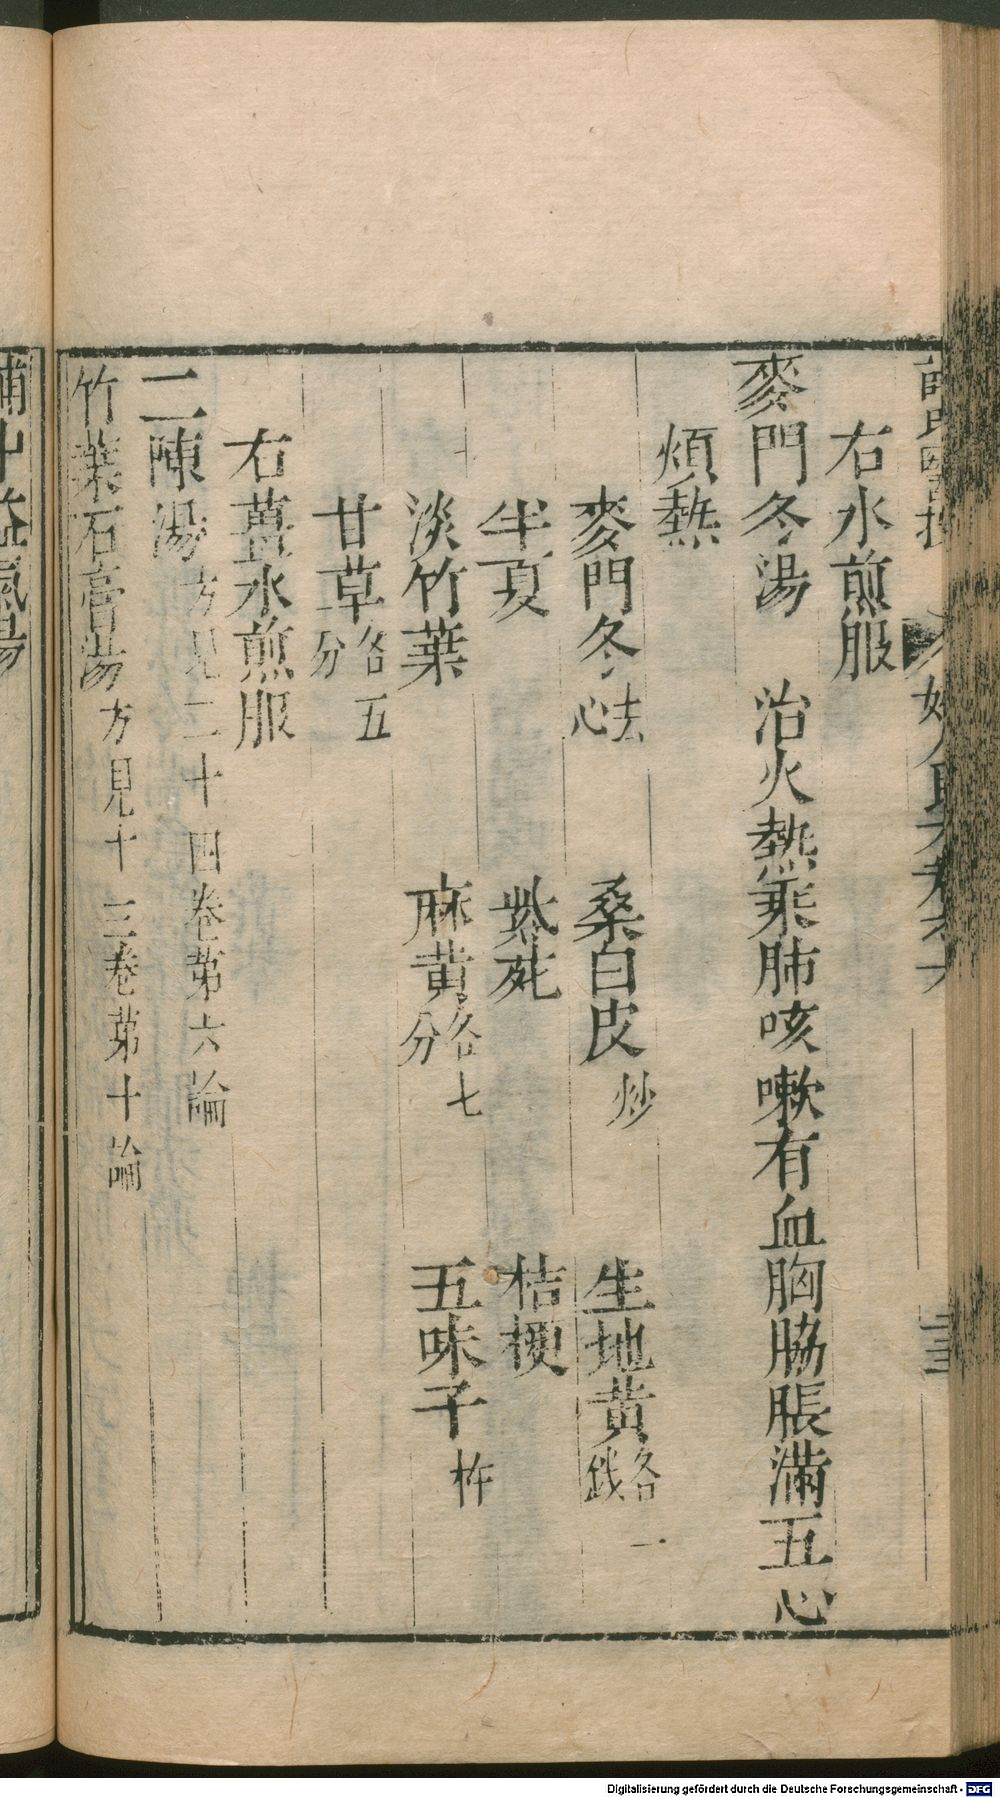 右水煎服
麥門冬湯 治火熱乘肺咳嗽有血胸脇脹滿五心
煩熱
麥門冬去心 桑白皮炒 生地黃各一錢
半夏 紫菀 桔梗
淡竹葉 麻黃各七分 五味子杵
甘草各五分
右薑水煎服
二陳湯方見二十四卷第六論
竹葉石膏湯方見十三卷第十論
補中益氣湯
Digitalisierung gefördert durch die Deutsche Forschungsgemeinschaft - DFG